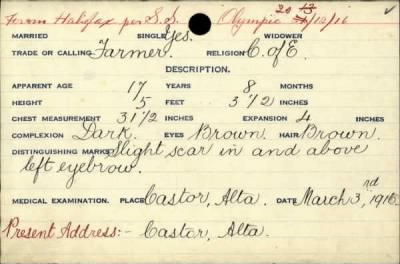 From Halifax per S.S. Olympic 20 13/12/16
MARRIED SINGLE Yes. WIDOWER
TRADE OR CALLING Farmer. RELIGION C. of E.
DESCRIPTION.
APPARENT AGE 17 YEARS 8 MONTHS
HEIGHT 5 FEET 3 1/2 INCHES
CHEST MEASUREMENT 31 1/2 INCHES EXPANSION 4 INCHES
COMPLEXION Dark. EYES Brown. HAIR Brown.
DISTINGUISHING MARKS Slight scar in and above
left eyebrow.
MEDICAL EXAMINATION. PLACE Castor, Alta. DATE March 3,nd 1916.
Present Address:- Castor, Alta.